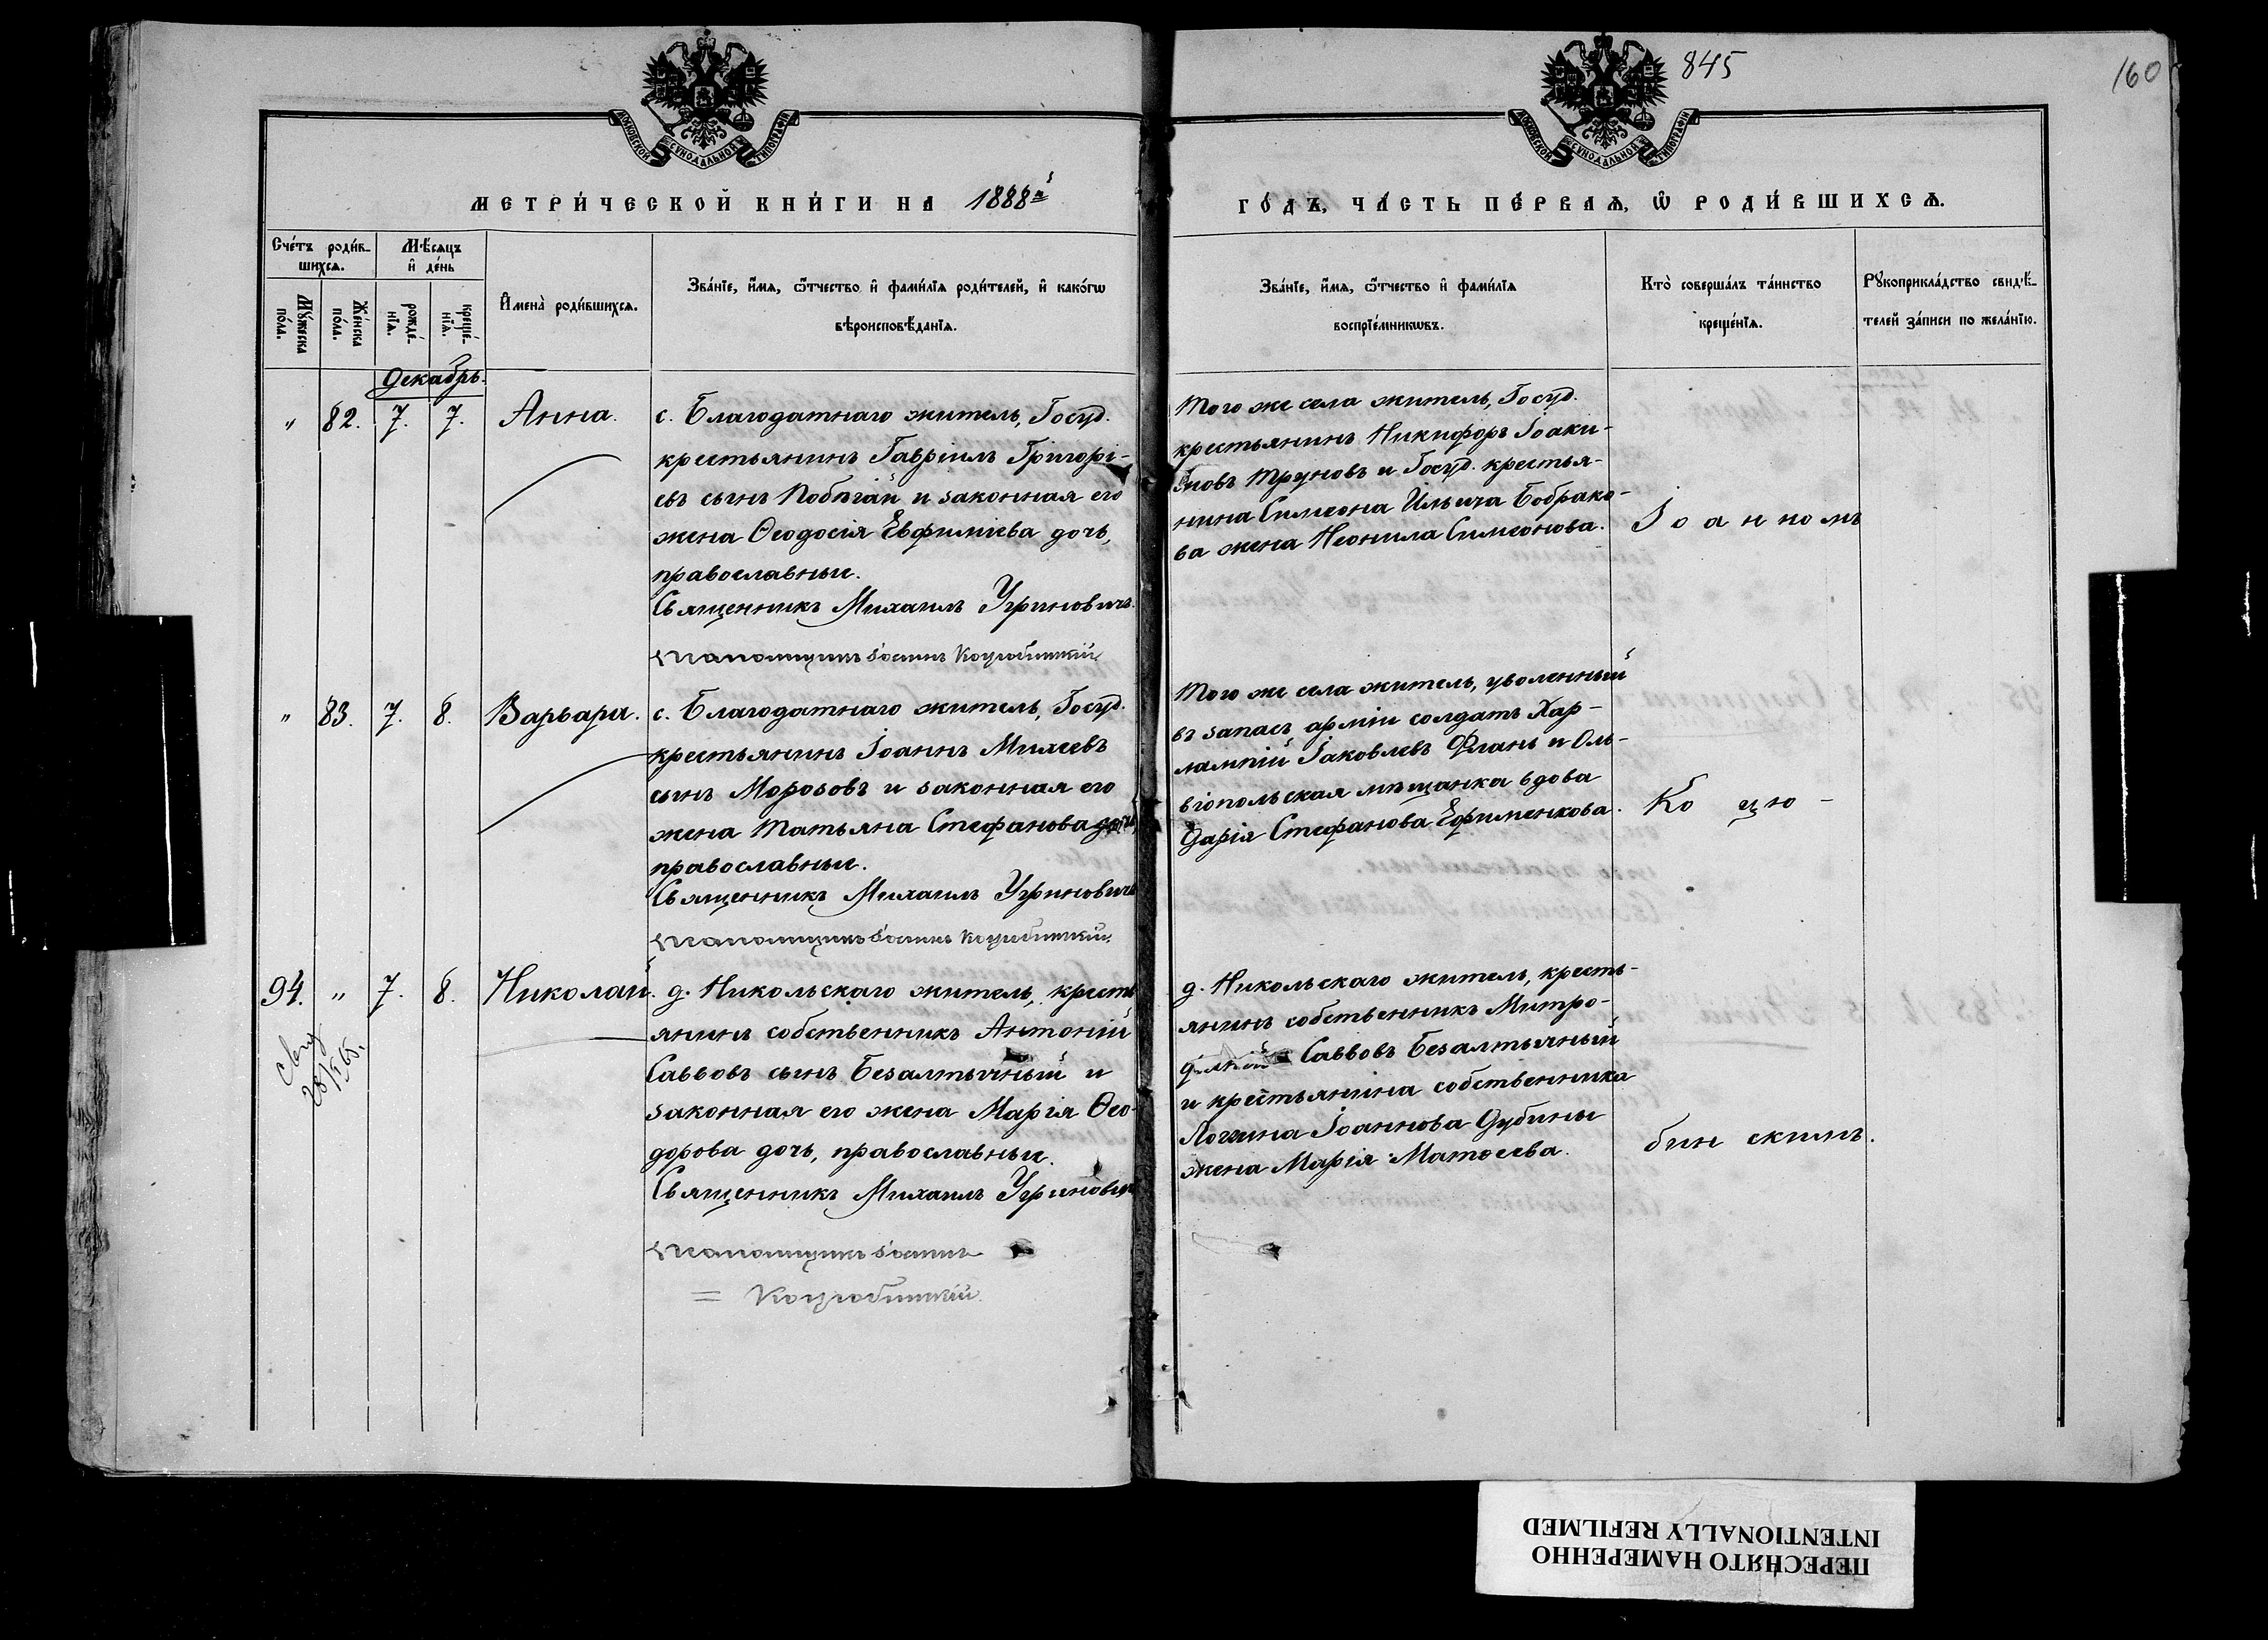 845
160
МОСКОВСКОЙ СѴНОДАЛЬНОЙ ТИПОГРАФІИ
МОСКОВСКОЙ СѴНОДАЛЬНОЙ ТИПОГРАФІИ
МЕТРИ́ЧЕСКОЙ КНИ́ГИ НА 1888й
ГО́ДЪ, ЧА́СТЬ ПЕ́РВАѦ, Ѡ РОДИ́ВШИХСѦ.
Сче́тъ роди́в-
шихсѧ.
Мѣ́сяцъ
и҆ де́нь
Мꙋ́жеска
по́ла.
Же́нска
по́ла.
рожде́-
нїѧ.
креще́-
нїѧ.
И҆мена̀ роди́вшихсѧ.
Зва́нїе, и҆́мя, ѻ҆́тчество и҆ фами́лїѧ роди́телей, и҆ како́гѡ
вѣроисповѣ́данїѧ.
Зва́нїе, и҆́мя, ѻ҆́тчество и҆ фами́лїѧ
воспрїе́мникѡвъ.
Кто̀ соверша́лъ та́инство
креще́нїѧ.
Рꙋкоприкла́дство свидѣ́-
телей за́писи по жела́нїю.
Декабрь.
" 82. 7. 7. Анна.
с. Благодатнаго житель, Госуд.
крестьянинъ Гавріилъ Григорі-
евъ сынъ Побѣгай и законная его
жена Ѳеодосія Евфиміева дочь,
православные.
Священникъ Михаилъ Угриновичъ.
Псаломщикъ Іоаннъ Коцюбинскій
Того же села житель, Госуд.
крестьянинъ Никифоръ Іоаки-
мовъ Труновъ и Госуд. крестья-
нина Симеона Ильича Бобрако-
ва жена Неонила Симеонова.
Іоанномъ
" 83. 7. 8. Варвара.
с. Благодатнаго житель, Госуд.
крестьянинъ Іоаннъ Михеевъ
сынъ Морозовъ и законная его
жена Татьяна Стефанова дочь,
православные.
Священникъ Михаилъ Угриновичъ
Псаломщикъ Іоаннъ Коцюбинскій.
Того же села житель, уволенный
въ запасъ арміи солдатъ Хар-
лампій Іаковлевъ Фланъ и Оль-
віопольская мѣщанка вдова
Дарія Стефанова Ефименкова.
Коцю-
94. " 7. 8. Николай.
28/I 56.
д. Никольскаго житель, кресть
янинъ собственникъ Антоній
Саввовъ сынъ Безалтычный и
законная его жена Марія Ѳео-
дорова дочь, православные.
Священникъ Михаилъ Угриновичъ
Псаломщикъ Іоаннъ
= Коцюбинскій.
д. Никольскаго житель, кресть-
янинъ собственникъ Митро-
Саввовъ Безалтычный
и крестьянина собственника
Логгина Іоаннова Дубины
жена Марія Матѳеева.
бинскимъ.
ПЕРЕСНЯТО НАМЕРЕННО
INTENTIONALLY REFILMED